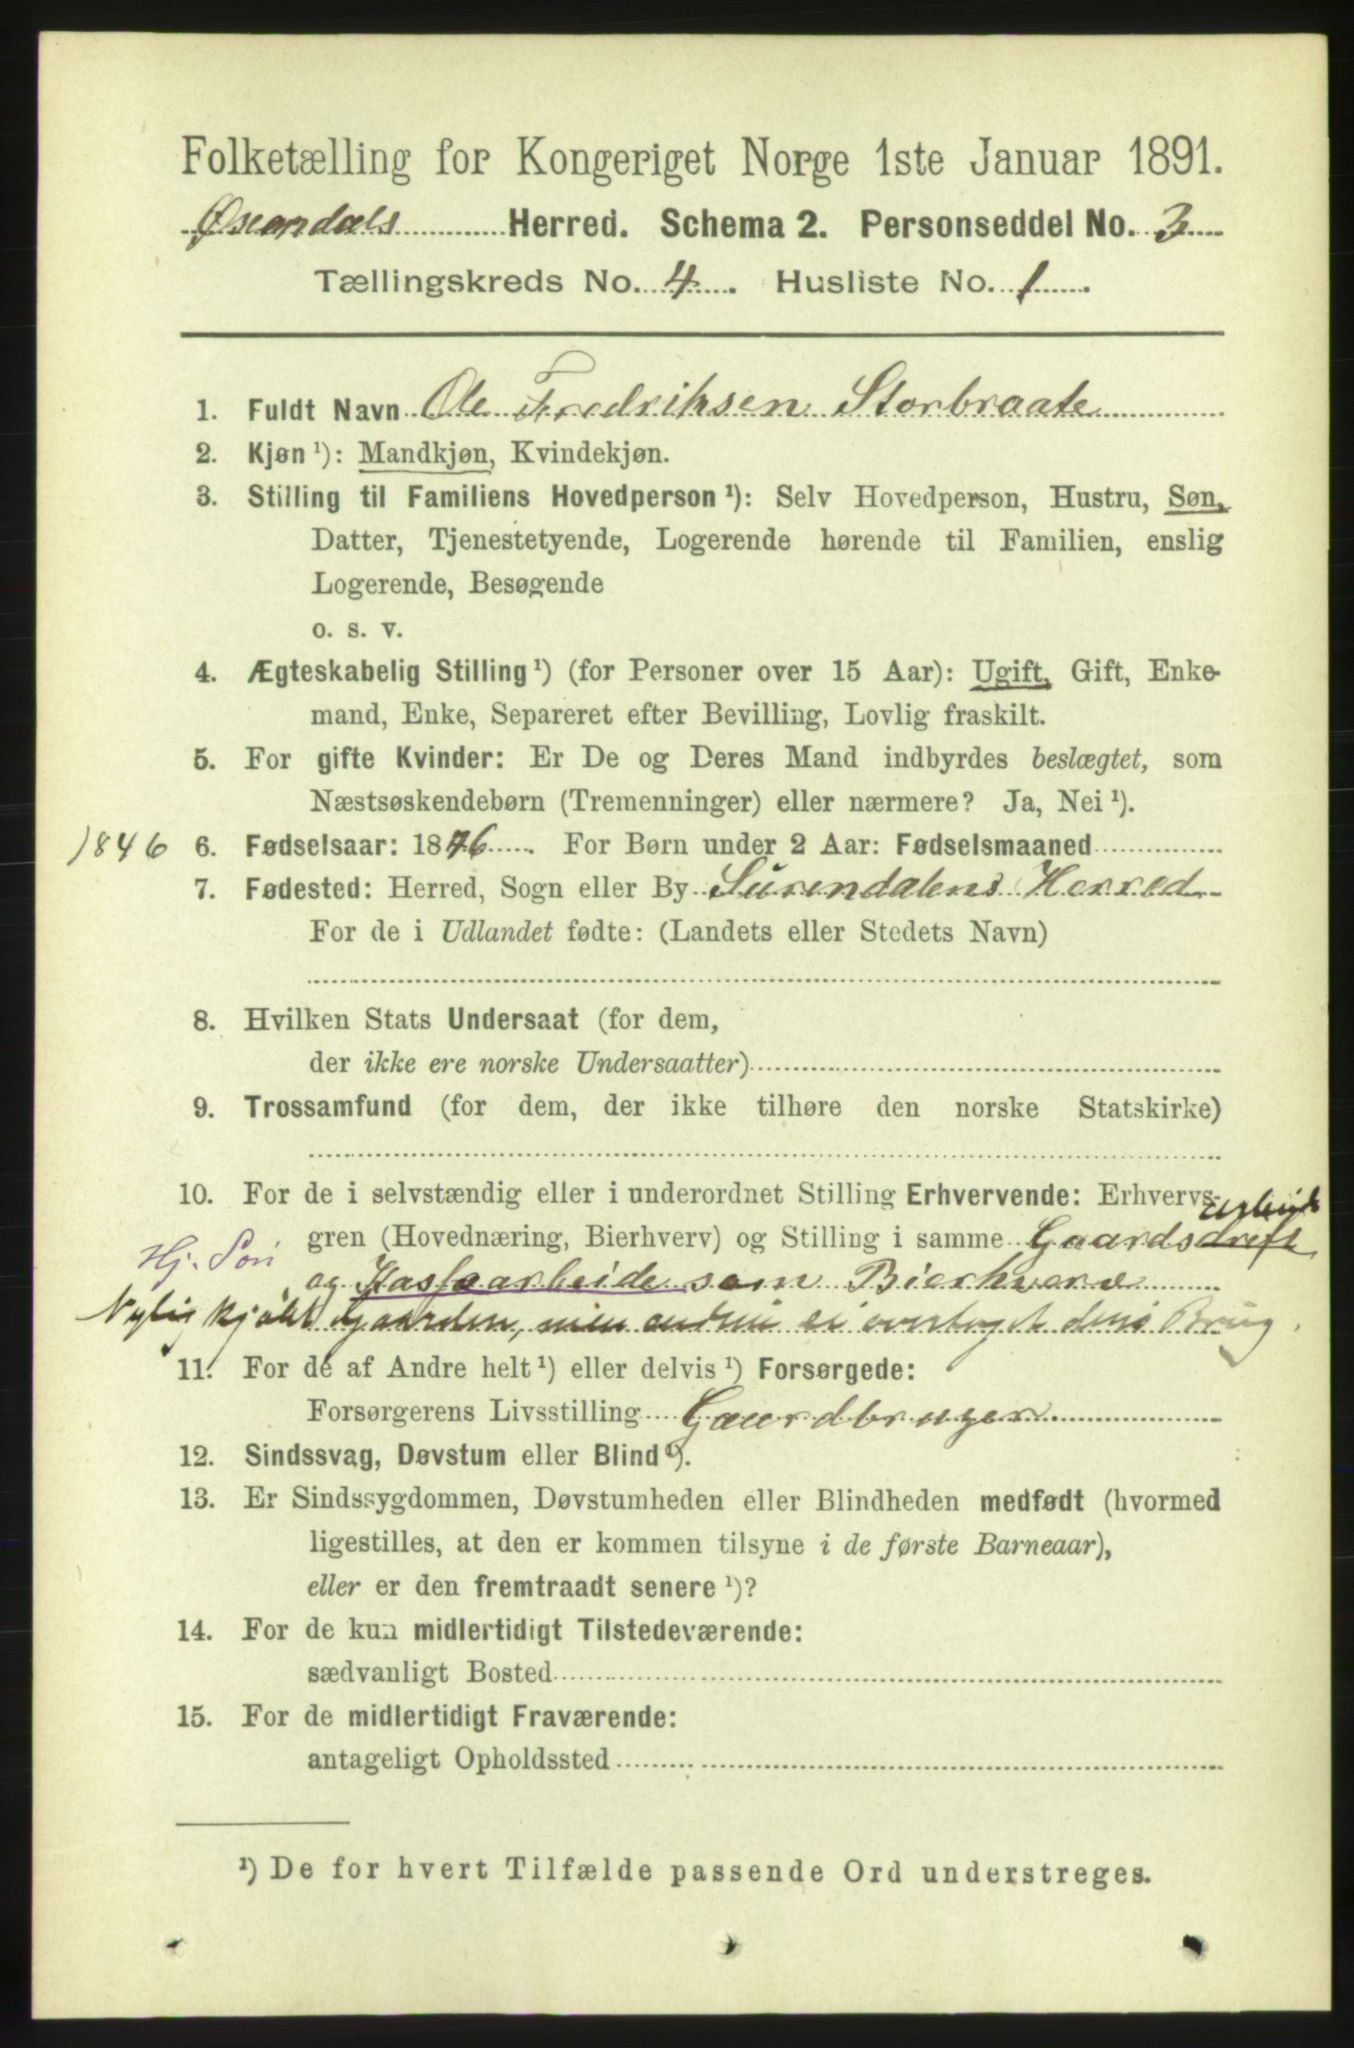 Folketælling for Kongeriget Norge 1ste Januar 1891.
Øxendals Herred. Schema 2. Personseddel No. 3
Tællingskreds No. 4. Husliste No. 1.
1. Fuldt Navn Ole Fredriksen Storbraate
2. Kjøn ¹): Mandkjøn, Kvindekjøn.
3. Stilling til Familiens Hovedperson ¹): Selv Hovedperson, Hustru, Søn,
Datter, Tjenestetyende, Logerende hørende til Familien, enslig
Logerende, Besøgende
o. s. v.
4. Ægteskabelig Stilling ¹) (for Personer over 15 Aar): Ugift, Gift, Enke-
mand, Enke, Separeret efter Bevilling, Lovlig fraskilt.
5. For gifte Kvinder: Er De og Deres Mand indbyrdes beslægtet, som
Næstsøskendebørn (Tremenninger) eller nærmere? Ja, Nei ¹).
1846 6. Fødselsaar: 1846. For Børn under 2 Aar: Fødselsmaaned
7. Fødested: Herred, Sogn eller By Surendalens Herred
For de i Udlandet fødte: (Landets eller Stedets Navn)
8. Hvilken Stats Undersaat (for dem,
der ikke ere norske Undersaatter)
9. Trossamfund (for dem, der ikke tilhøre den norske Statskirke)
10. For de i selvstændig eller i underordnet Stilling Erhvervende: Erhvervs-
arbeide
gren (Hovednæring, Bierhverv) og Stilling i samme Gaardsdreft
Hj. Søn
og som Bierhverv
Nylig kjøbt Gaarden, men endnu ei overtaget dens Brug.
11. For de af Andre helt ¹) eller delvis ¹) Forsørgede:
Forsørgerens Livsstilling Gaardbruger
12. Sindssvag, Døvstum eller Blind ¹).
13. Er Sindssygdommen, Døvstumheden eller Blindheden medfødt (hvormed
ligestilles, at den er kommen tilsyne i de første Barneaar),
eller er den fremtraadt senere ¹)?
14. For de kun midlertidigt Tilstedeværende:
sædvanligt Bosted
15. For de midlertidigt Fraværende:
antageligt Opholdssted
¹) De for hvert Tilfælde passende Ord understreges.